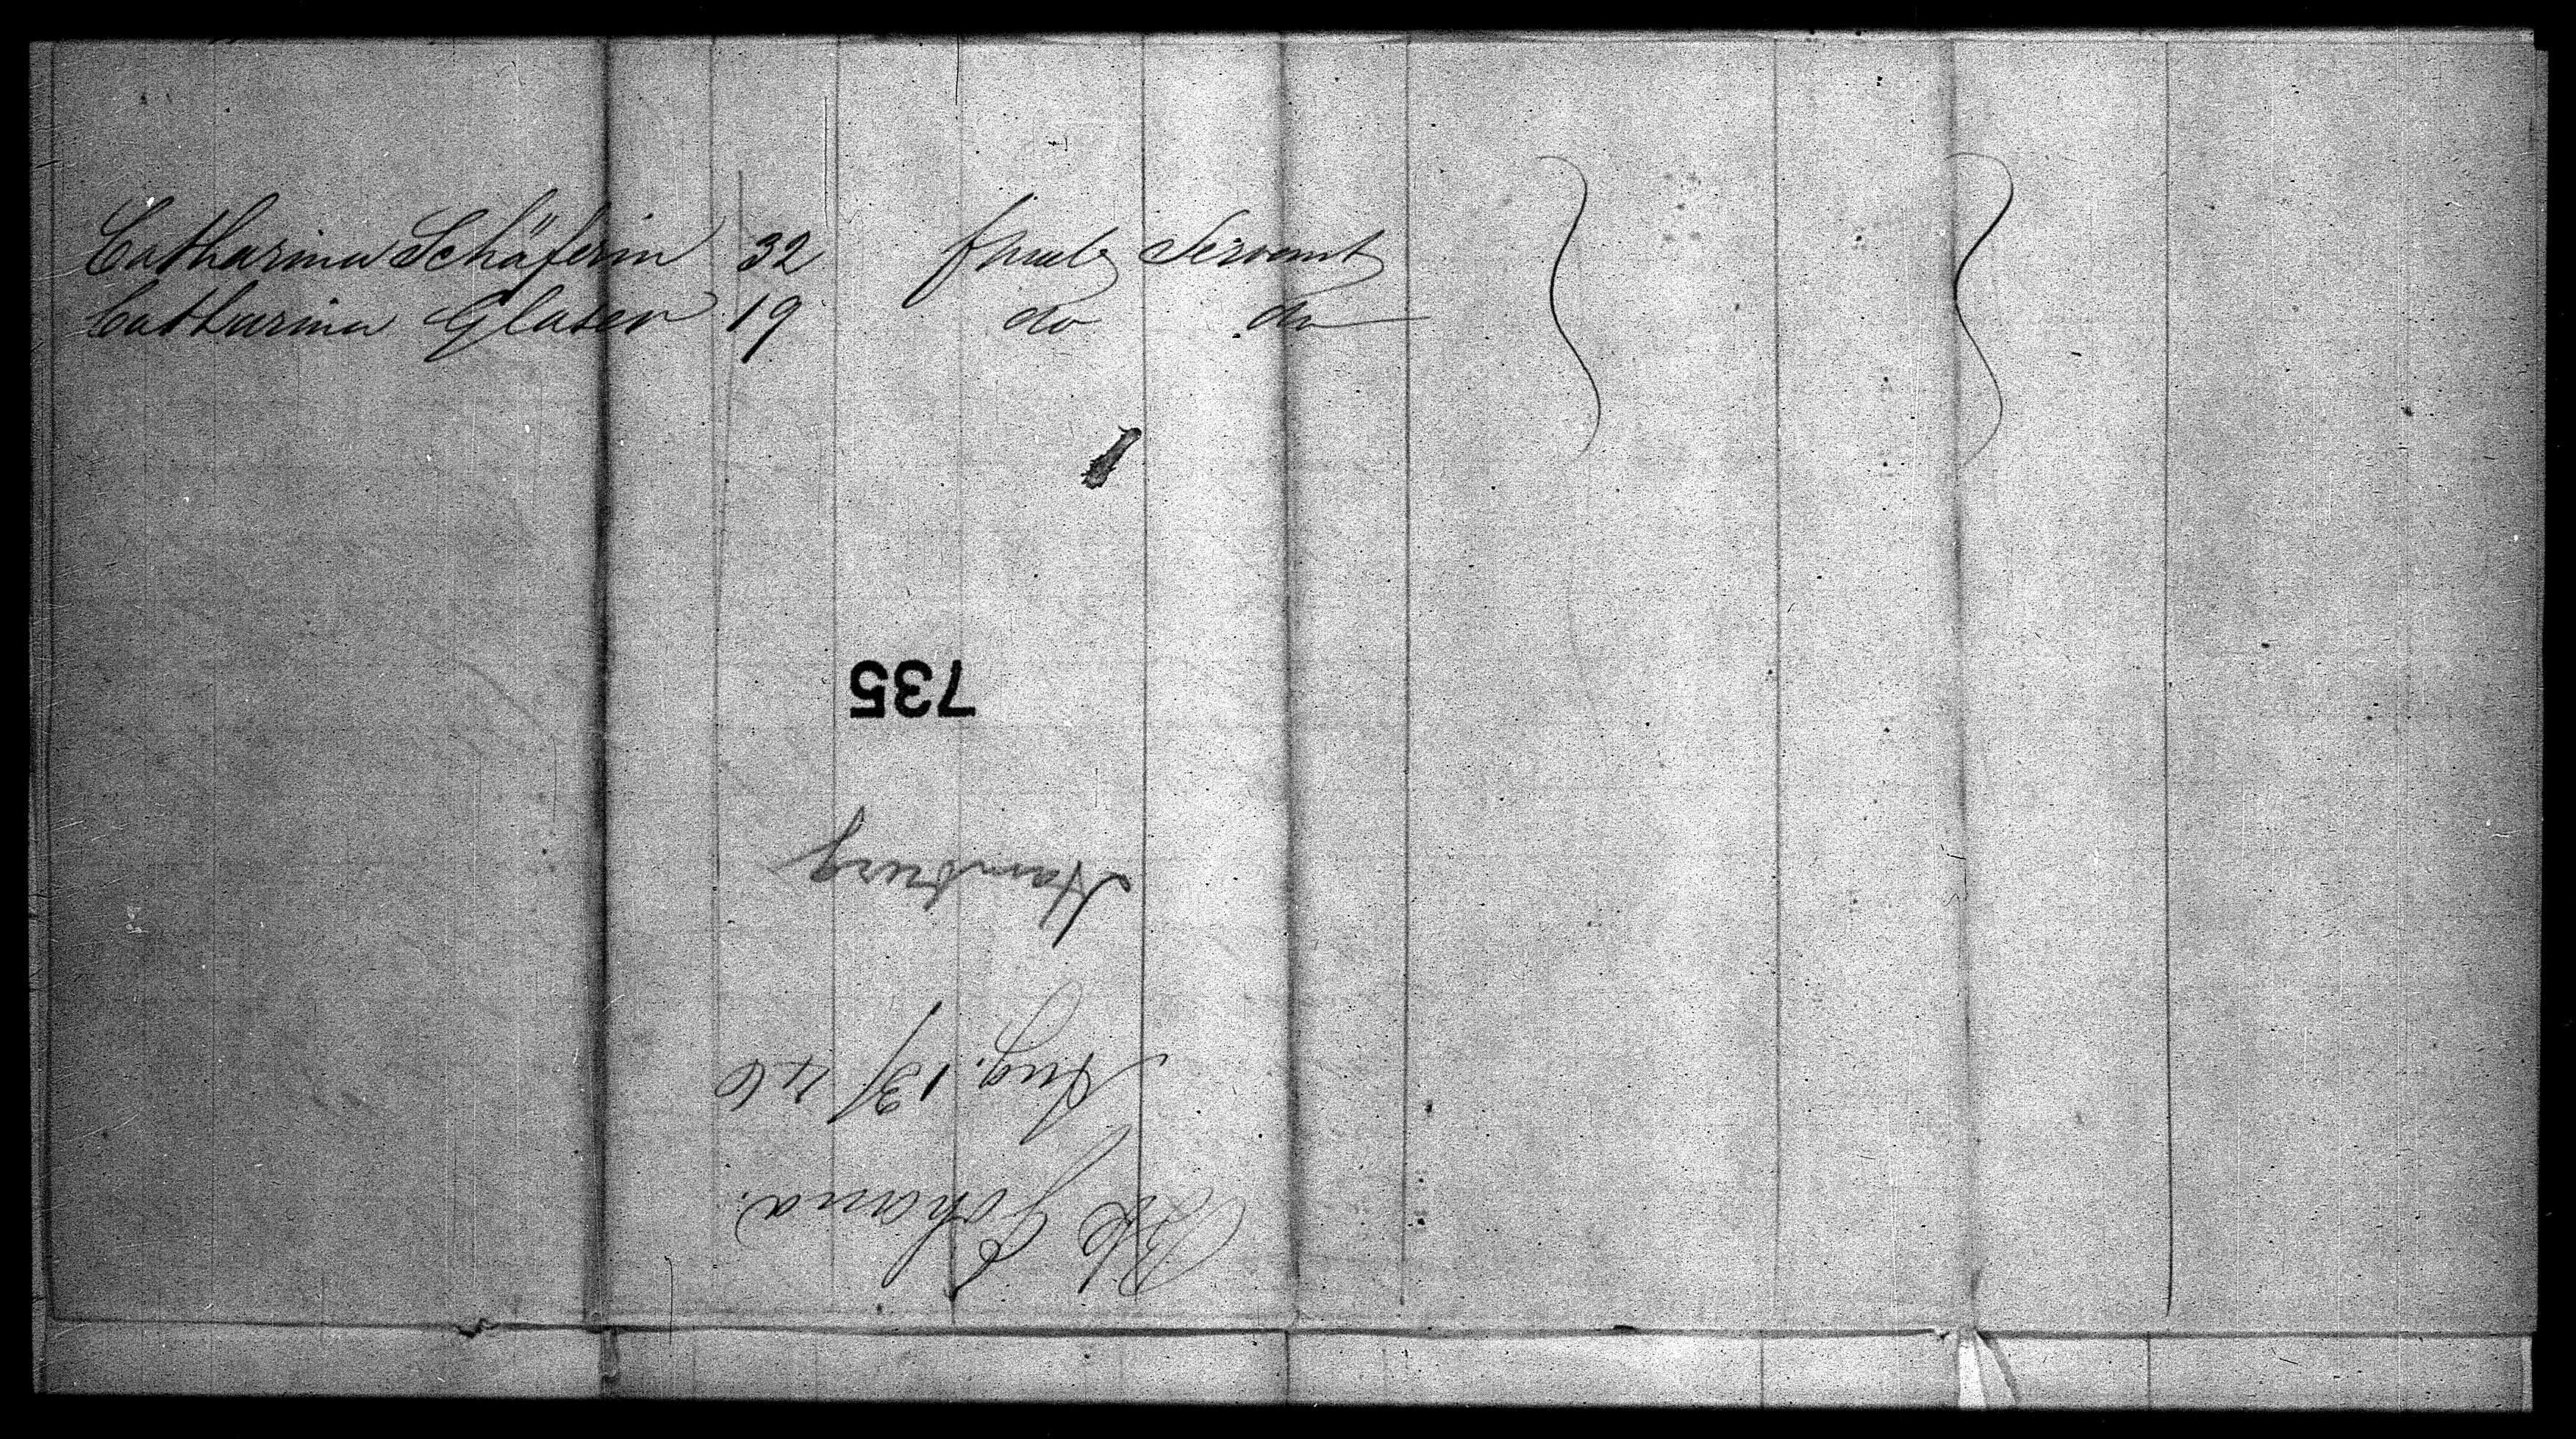 Catharina Schäferin 32 female Servant
Catharina Glaser 19 do do
735
Bk Johanna.
Aug. 13/46
Hamburg